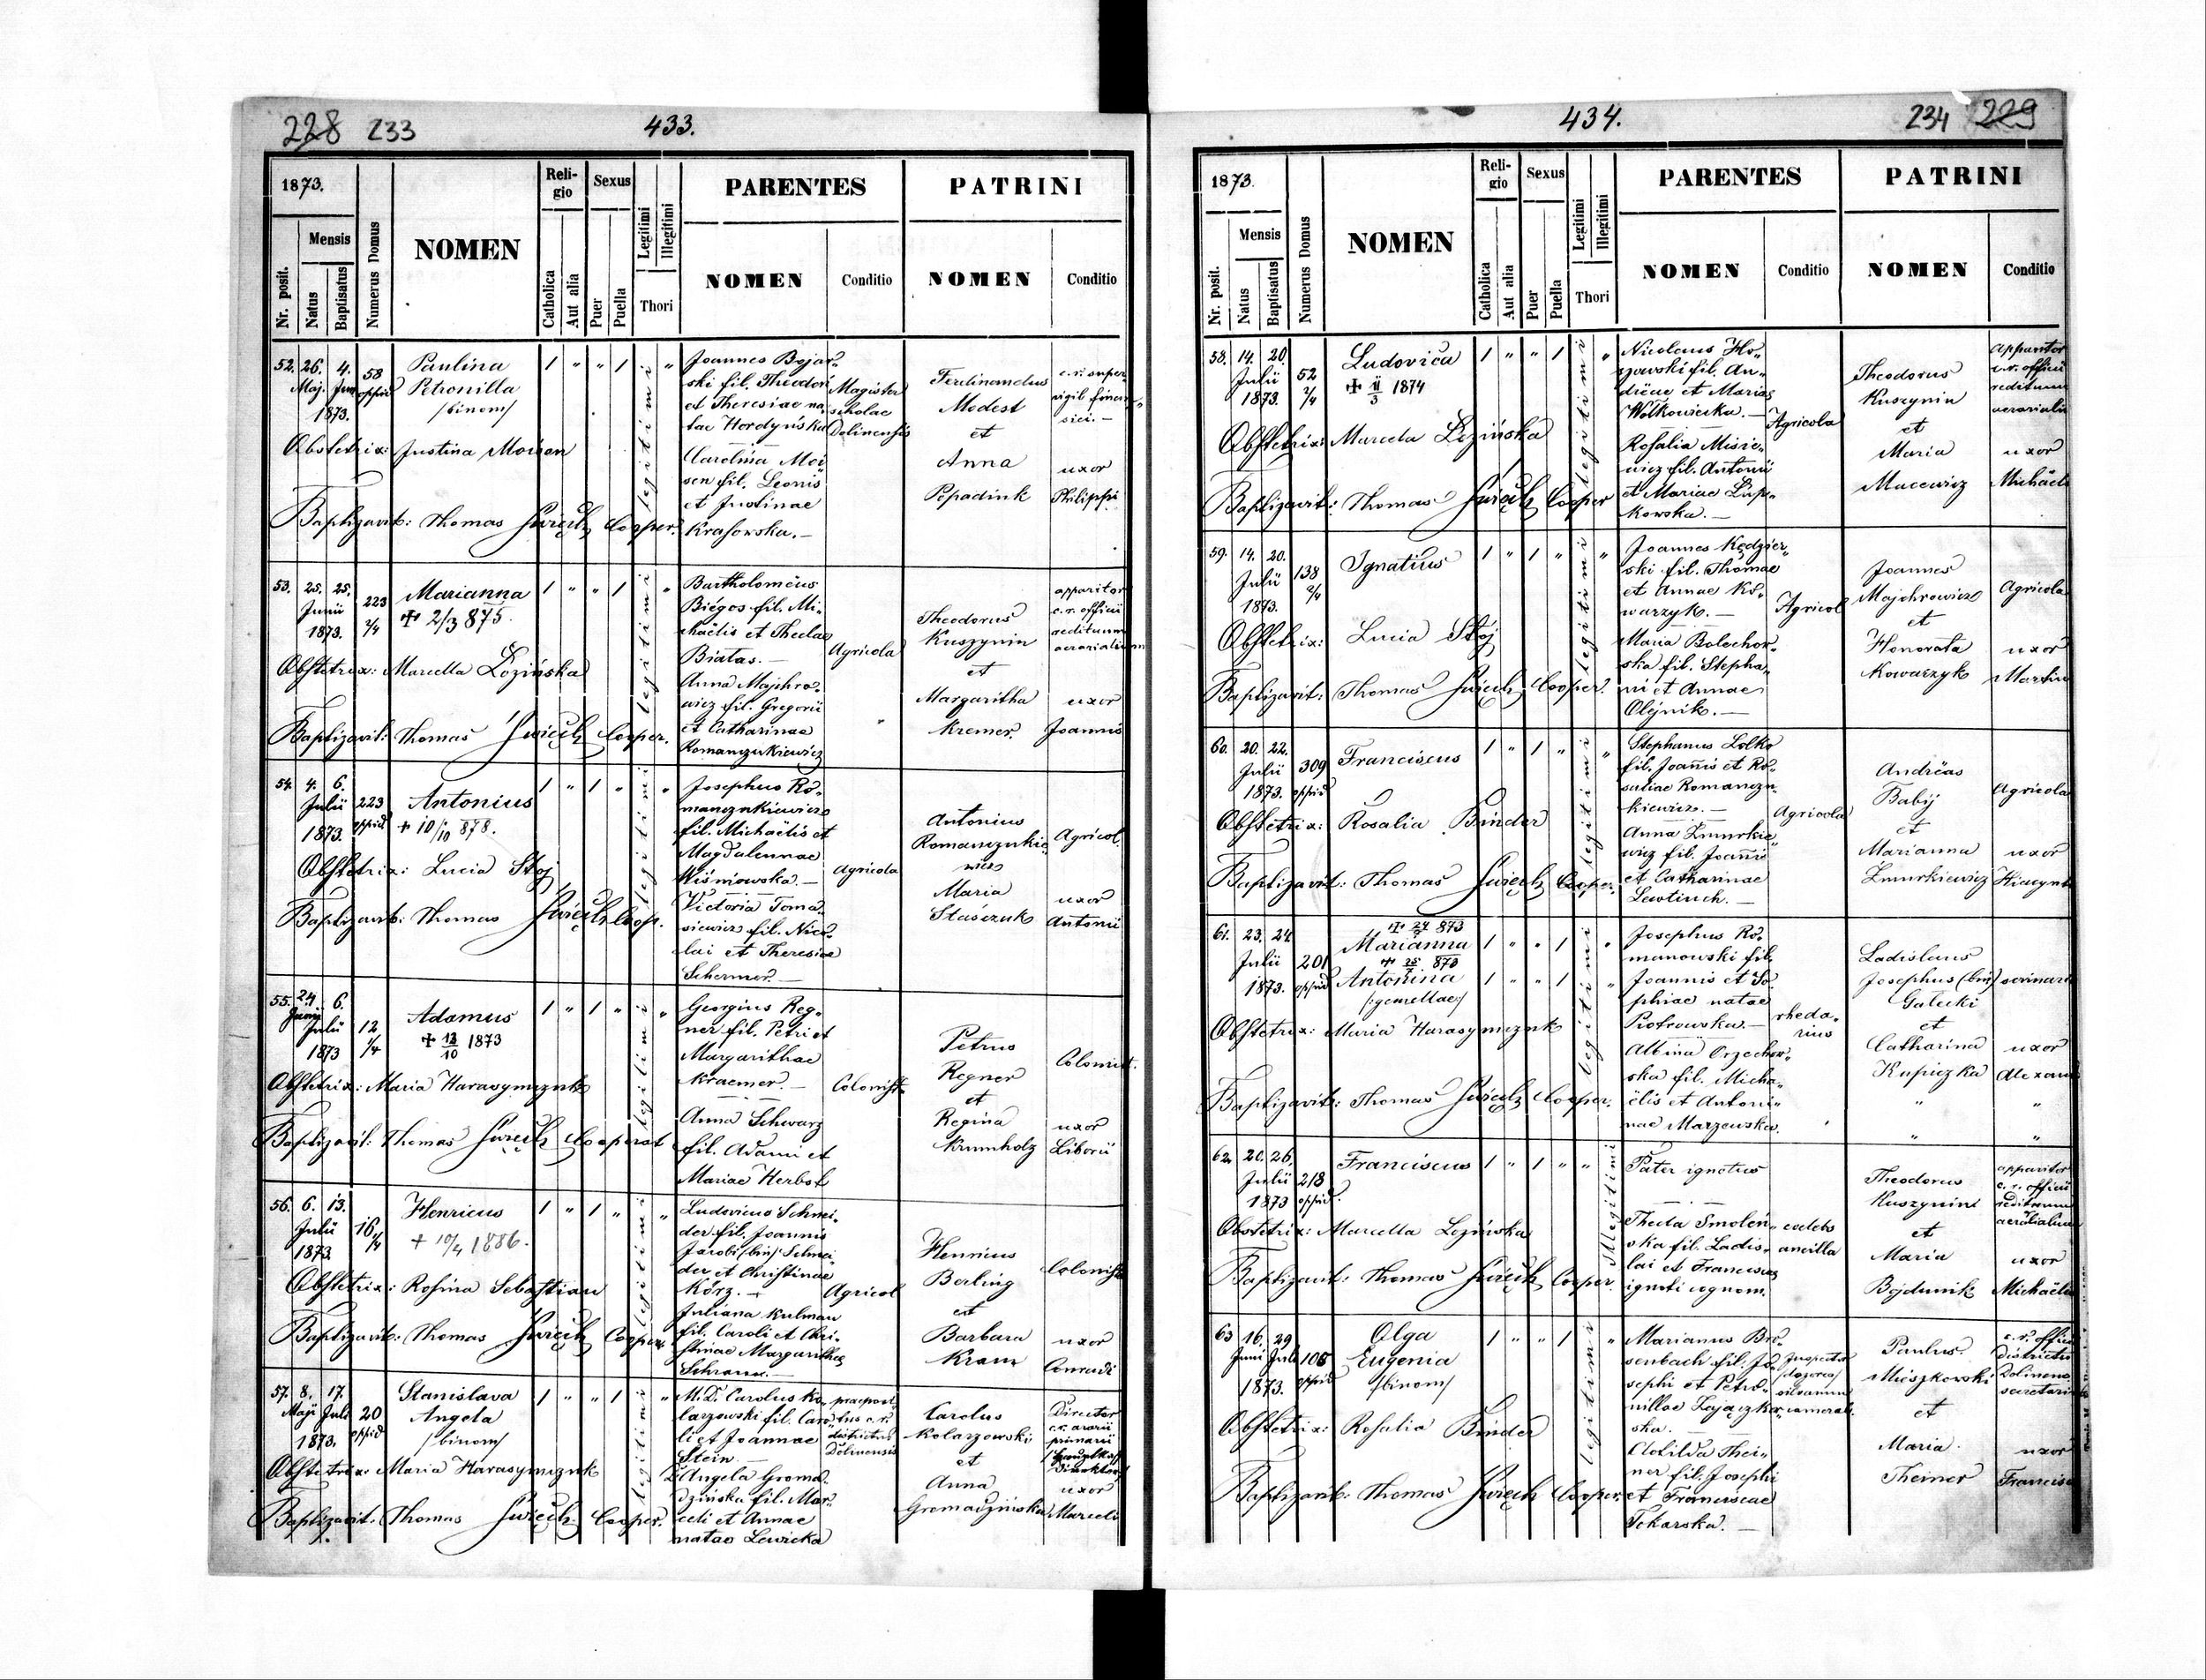 228 233 433.
1873.
Nr. posit.
Mensis
Natus
Baptisatus
Numerus Domus
NOMEN
Religio
Catholica
Aut alia
Sexus
Puer
Puella
Legitimi
Illegitimi
Thori
PARENTES
NOMEN
Conditio
PATRINI
NOMEN
Conditio
52. 26. 4. 58 Paulina 1 " " 1 "
Maj. Jun. oppid Petronilla
1873. /binom/
Obstetrix: Justina Moisen
Baptizavit: Thomas Święch Cooper.
legitimi
Joannes Bojar-
ski fil. Theodori
et Theresiae na-
tae Hordyńska
Carolina Moi
sen fil. Leonis
et Justinae
Krasowska.—
Magister
scholae
Dolinensis
Ferdinandus
Modest
et
Anna
Popadiuk
c. r. super
vigil finan-
siei.—
uxor
Philippi
53. 25. 25. 223 Marianna 1 " " 1 "
Junii 2/4 + 2/3 875.
1873.
Obstetrix: Marcella Łozińska
Baptizavit: Thomas Święch Cooper.
legitimi
Bartholomeus
Biégos fil. Mi-
chaëlis et Theclae
Białas.—
Anna Majchro-
wicz fil. Gregorii
et Catharinae
Romanczukiewicz
Agricola
Theodorus
Kuszynin
et
Margaritha
Kremer.
apparitor
c. r. officii
redituum
aerarialium
uxor
Joannis
54. 4. 6. 223 Antonius 1 " 1 " "
Julii oppid + 10/10 878.
1873.
Obstetrix: Lucia Stoj
Baptizavit: Thomas Święch Coop.
legitimi
Josephus Ro-
manczukiewicz
fil. Michaëlis et
Magdalennae
Wiśniowska.—
Victoria Toma-
siewicz fil. Nico-
lai et Theresiae
Schermer.—
Agricola
Antonius
Romanczukie-
wicz
Maria
Stasczuk
Agricol.
uxor
Antonii
55. 24. 6. Adamus 1 " 1 " "
Junii Julii 12 + 13/10 1873
1873 1/4
Obstetrix: Maria Harasymczuk
Baptizavit: Thomas Święch Cooperat
legitimi
Georgius Reg-
ner fil. Petri et
Margarithae
Kraemer.—
Anna Schwarz
fil. Adami et
Mariae Herbst
Colonist.
Petrus
Regner
et
Regina
Krumholz
Colonist.
uxor
Liborii
56. 6. 13. 16 Henricus 1 " 1 " "
Julii 1/4 + 10/4 1886.
1873.
Obstetrix: Rosina Sebastian
Baptizavit: Thomas Święch Cooper.
legitimi
Ludovicus Schnei-
der fil. Joannis
Jacobi (bin) Schnei
der et Christinae
Körz.—
Juliana Kulman
fil. Caroli et Chri-
stinae Margarithae
Schramm.—
Agricol
Henricus
Berling
et
Barbara
Kranz
Colonist
uxor
Conradi
57. 8. 17. 20 Stanislava 1 " " 1 "
Maji Julii oppid Angela
1873. /binom/
Obstetrix: Maria Harasymczuk
Baptizavit: Thomas Święch Cooper.
legitimi
M. D. Carolus Ko-
larzowski fil. Caro-
li et Joannae
Stein
Angela Groma-
dzińska fil. Mar-
celi et Annae
natae Lewicka
praeposi-
tus c. r.
districtus
Dolinensis
Carolus
Kolarzowski
et
Anna
Gromadzińska
Director
c. r. aerarii
primarii
uxor
Marceli
434. 234 229
1873.
Nr. posit.
Mensis
Natus
Baptisatus
Numerus Domus
NOMEN
Religio
Catholica
Aut alia
Sexus
Puer
Puella
Legitimi
Illegitimi
Thori
PARENTES
NOMEN
Conditio
PATRINI
NOMEN
Conditio
58. 14. 20. 52 Ludovica 1 " " 1 "
Julii 2/4 + 11/3 1874
1873.
Obstetrix: Marcela Łozińska
Baptizavit: Thomas Święch Cooper
legitimi
Nicolaus Ho-
szowski fil. An-
dreae et Mariae
Wołkowiecka.—
Rosalia Misie-
wicz fil. Antonii
et Mariae Lisp-
kowska.—
Agricola
Theodorus
Kuszynin
et
Maria
Macewicz
apparitor
c. r. officii
redituum
aerarialiu
uxor
Michaëli
59. 14. 20. 138 Ignatius 1 " 1 " "
Julii 2/4
1873.
Obstetrix: Lucia Stoj
Baptizavit: Thomas Święch Cooper.
legitimi
Joannes Kędzier-
ski fil. Thomae
et Annae Ko-
warzyk.—
Maria Bolechow-
ska fil. Stepha-
ni et Annae
Olejnik.—
Agricol
Joannes
Majchrowicz
et
Honorata
Kowarzyk
Agricola
uxor
Martini
60. 20. 22. 309 Franciscus 1 " 1 " "
Julii oppid
1873.
Obstetrix: Rosalia Binder
Baptizavit: Thomas Święch Cooper.
legitimi
Stephanus Lolko
fil. Joannis et Ro-
saliae Romanczu-
kiewicz.—
Anna Żmurkie-
wicz fil. Joannis
et Catharinae
Lewtiuch.—
Agricola
Andreas
Babij
et
Marianna
Żmurkiewicz
Agricola
uxor
Hiacynth
61. 23. 24. 201 + 24/7 873
Julii oppid Marianna 1 " " 1 "
1873. + 25/7 873
Antonina 1 " " 1 "
/gemellae/
Obstetrix: Maria Harasymczuk
Baptizavit: Thomas Święch Cooper.
legitimi
Josephus Ro-
manowski fil.
Joannis et So-
phiae natae
Piotrowska.—
Albina Orzechow-
ska fil. Micha-
ëlis et Antoni-
nae Marzewska.
rheda-
rius
Ladislaus
Josephus (bin)
Gałecki
et
Catharina
Kupiczka
scrinari
uxor
Alexan
62. 20. 26. 218 Franciscus 1 " 1 " "
Julii oppid.
1873
Obstetrix: Marcella Łozińska
Baptizavit: Thomas Święch Cooper.
Illegitimi
Pater ignotus
Thecla Smoleń-
ska fil. Ladis-
lai et Franciscae
ignoti cognom.
coelebs
ancilla
Theodorus
Kuszynin
et
Maria
Bojdunik
apparitor
c. r. officii
redituum
aerarialium
uxor
Michaëli
63 16. 29 105 Olga 1 " " 1 "
Juni Julii oppid Eugenia
1873. /binom/
Obstetrix: Rosalia Binder
Baptizavit: Thomas Święch Cooper.
legitimi
Marianus Bre-
senbach fil. Jo-
sephi et Petro-
nillae Zajączkow-
ska.
Clotilda Thei-
ner fil. Josephi
et Franciscae
Tokarska.—
Inspector
silvarum
cameral.
Paulus
Mieszkowski
et
Maria
Theiner
c. r. offici
districtu
Dolinens
secretari
uxor
Francisc